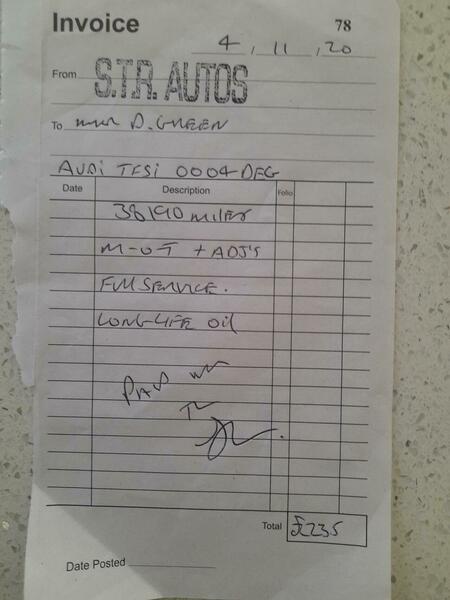 Invoice 78
4, 11, 20
From S.T.R. AUTOS
To D. GREEN
AUDI TFSI 0004 DEG
Date Description Folio
38190 MILES
M-O-T + ADJ'S
FULL SERVICE.
LONGLIFE OIL
PAID
Total £235
Date Posted